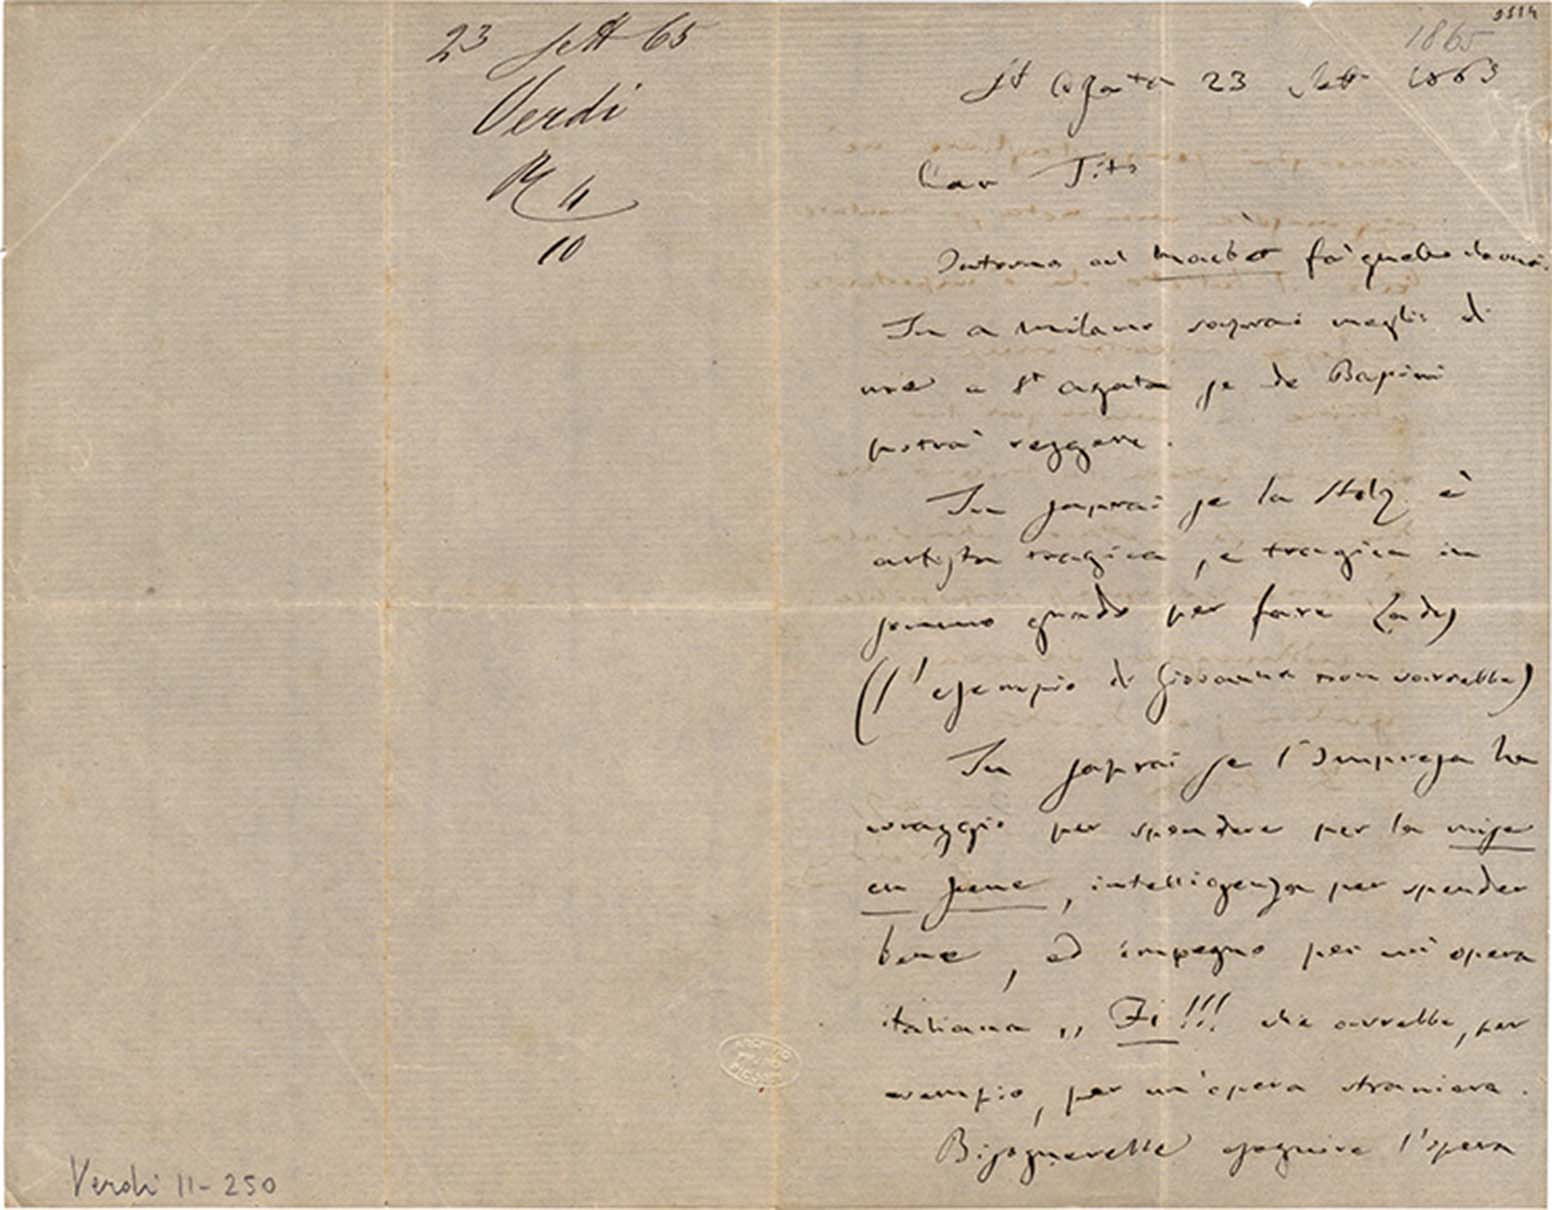 23 Sett 65
Verdi
R 4
10
Verdi 11-250
1865
St Agata 23 Sett 1865
Car Tito
Intorno al Macbet fa quello che vuoi.
Tu a Milano saprai meglio di
me a St Agata se De Bassini
potrà reggere.
Tu saprai se la Stolz è
artista tragica, e tragica in
sommo grado per fare Lady
(l'esempio di Giovanna non varrebbe)
Tu saprai se l'Impresa ha
coraggio per spendere per la mise
en scene, intelligenza per spender
bene, ed impegno per un'opera
italiana „ Fi!!! che avrebbe, per
esempio, per un'opera straniera.
Bisognerebbe eseguire l'opera